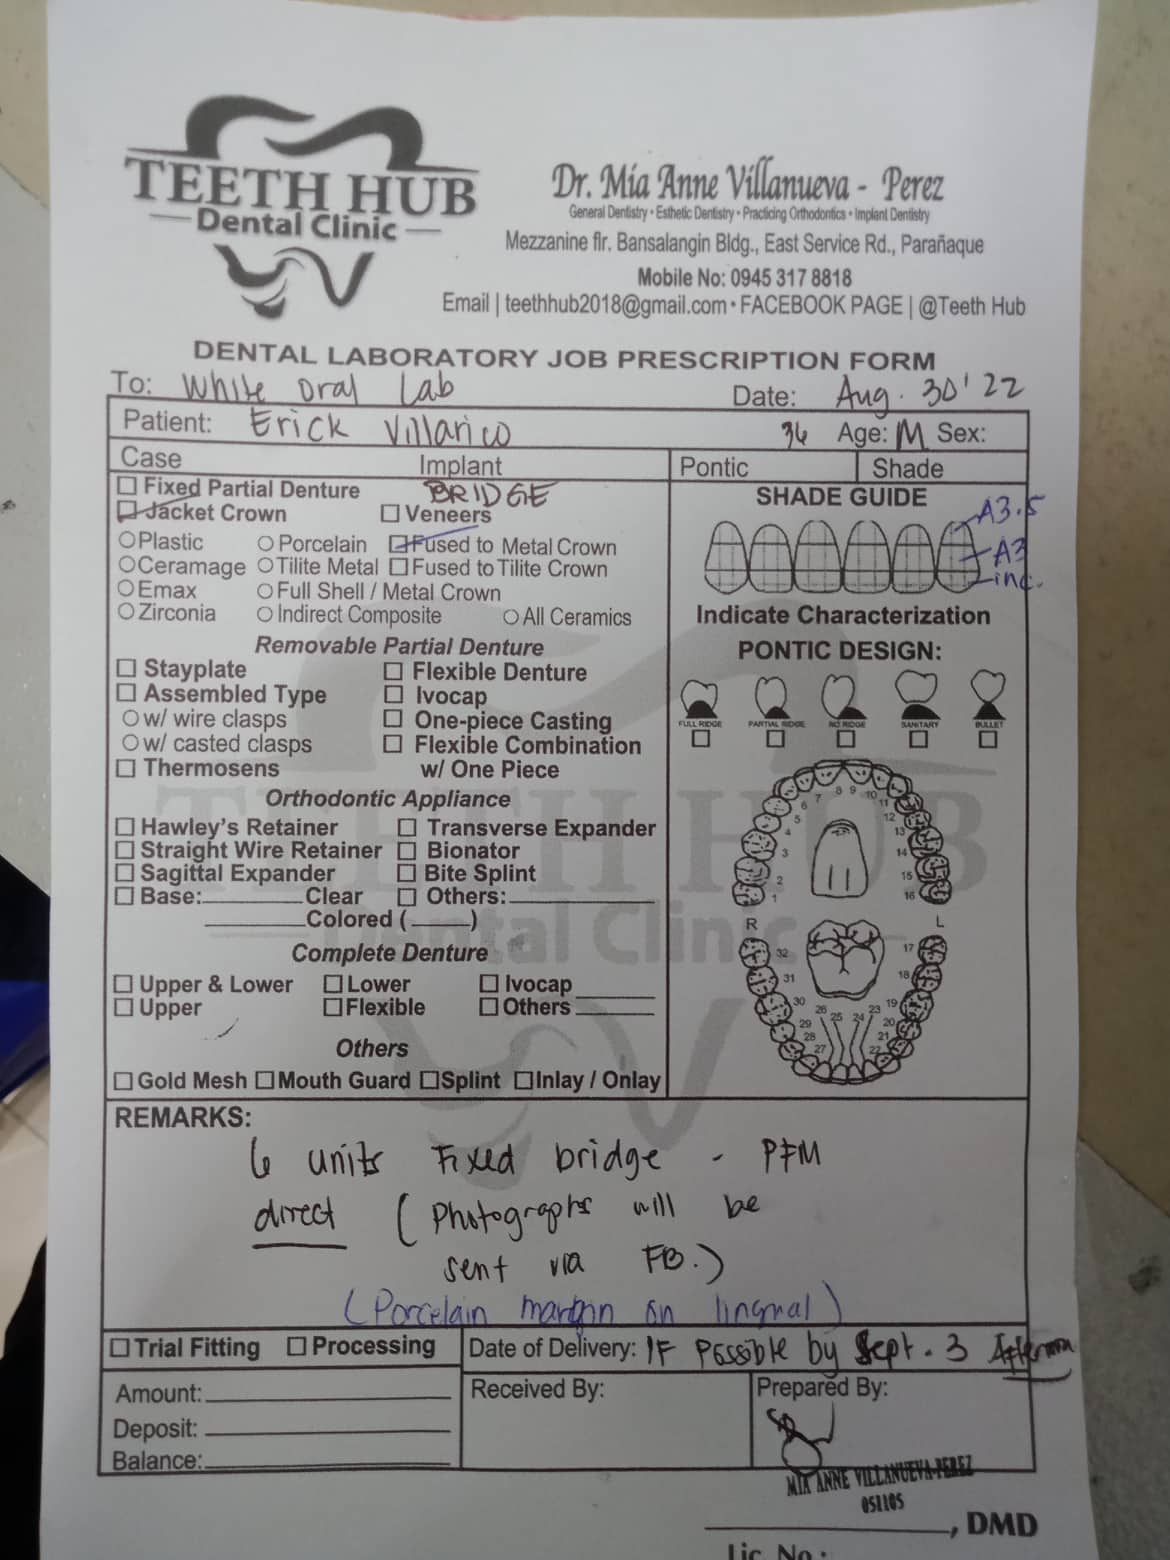 TEETH HUB
Dental Clinic
Dr. Mia Anne Villanueva - Perez
General Dentistry • Esthetic Dentistry • Practicing Orthodontics • Implant Dentistry
Mezzanine flr. Bansalangin Bldg., East Service Rd., Parañaque
Mobile No: 0945 317 8818
Email | teethhub2018@gmail.com • FACEBOOK PAGE | @Teeth Hub
DENTAL LABORATORY JOB PRESCRIPTION FORM
To: White Oral Lab Date: Aug. 30' 22
Patient: Erick Villarico 36 Age: M Sex:
Case Implant Pontic Shade
Fixed Partial Denture BRIDGE
Jacket Crown Veneers
Plastic Porcelain Fused to Metal Crown
Ceramage Tilite Metal Fused to Tilite Crown
Emax Full Shell / Metal Crown
Zirconia Indirect Composite All Ceramics
Removable Partial Denture
Stayplate Flexible Denture
Assembled Type Ivocap
w/ wire clasps One-piece Casting
w/ casted clasps Flexible Combination
Thermosens w/ One Piece
Orthodontic Appliance
Hawley's Retainer Transverse Expander
Straight Wire Retainer Bionator
Sagittal Expander Bite Splint
Base:________Clear Others:________
________Colored (____)
Complete Denture
Upper & Lower Lower Ivocap
Upper Flexible Others ______
Others
Gold Mesh Mouth Guard Splint Inlay / Onlay
SHADE GUIDE
A3.5
A3
inc.
Indicate Characterization
PONTIC DESIGN:
FULL RIDGE PARTIAL RIDGE NO RIDGE SANITARY BULLET
8 9
7 10
6 11
5 12
4 13
3 14
2 15
1 16
R L
32 17
31 18
30 19
29 20
28 21
27 22
26 25 24 23
TEETH HUB
Dental Clinic
REMARKS:
6 units Fixed bridge - PFM
direct (Photographs will be
sent via FB.)
(Porcelain margin on lingual)
Trial Fitting Processing Date of Delivery: IF Possible by Sept. 3 Afternoon
Amount:________ Received By: Prepared By:
Deposit:________
Balance:________
MIA ANNE VILLANUEVA-PEREZ
051105
________, DMD
Lic. No.: